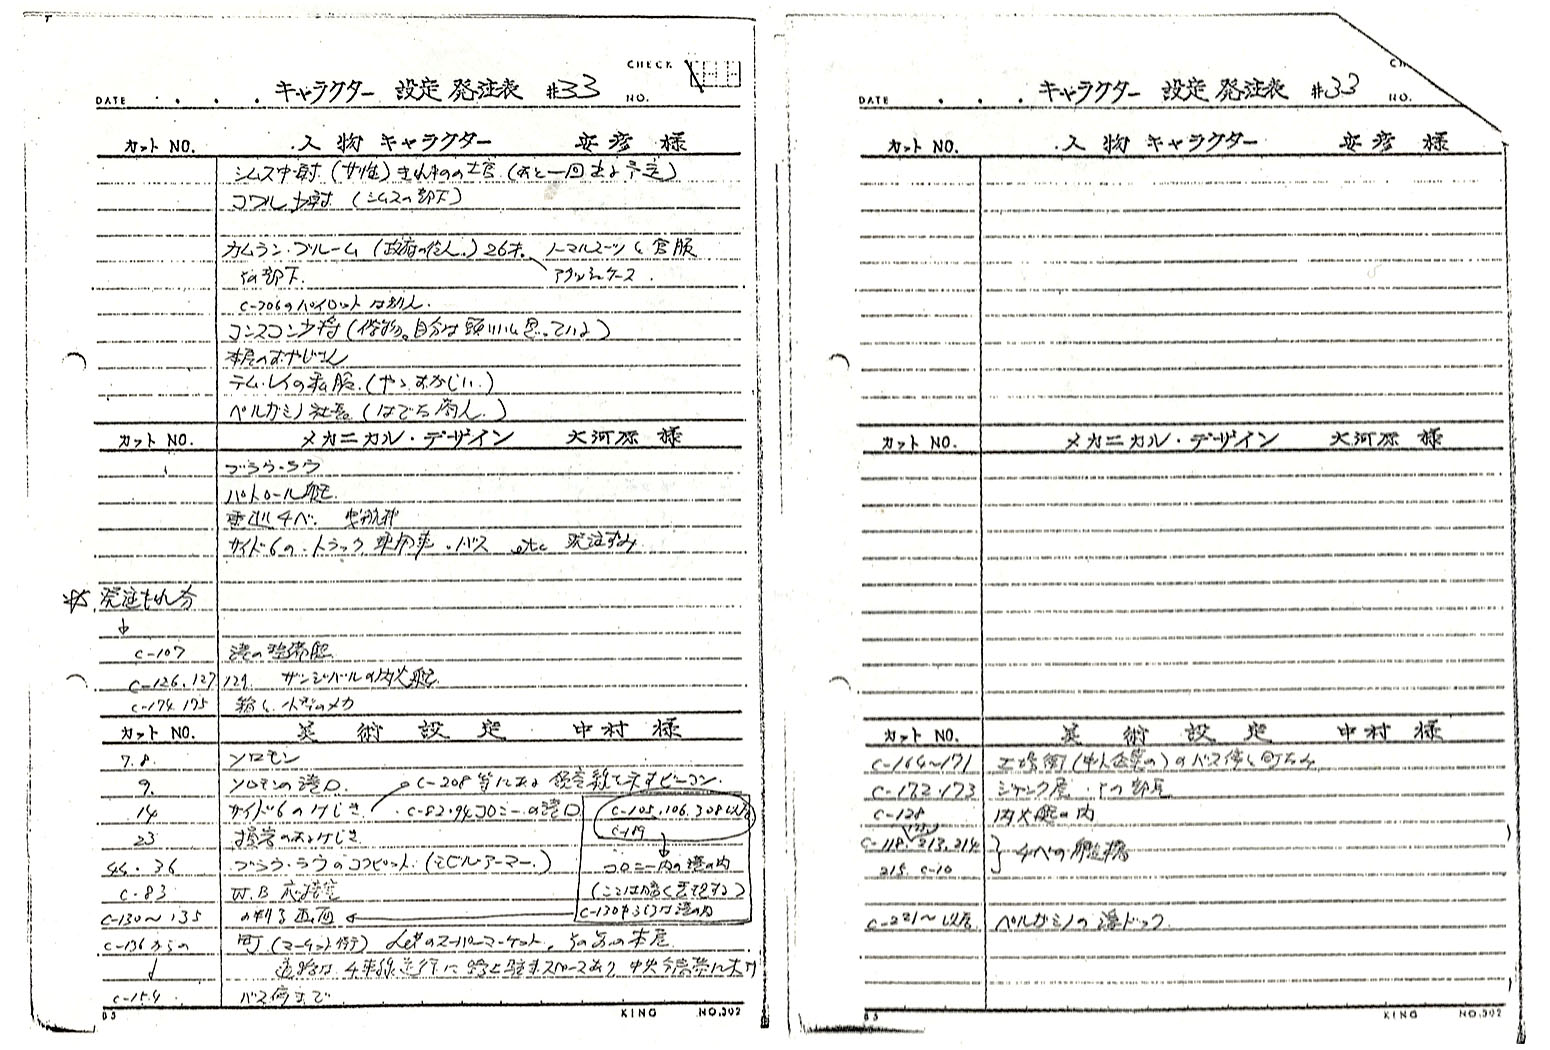 CHECK
DATE . . . キャラクター 設定 発注表 #33 NO.
カットNO. 人物キャラクター 安彦 様
シムス中尉 (女性) きれ者の士官 (あと一回出る予定)
コワル少尉 (シムスの部下)
カムラン・ブルーム (政府の役人.) 26才. ノーマルスーツと会服
その部下. アタッシュケース.
C-206のパイロットは別人.
コンスコン少将 (俗物。自分は頭いいと思っている)
本屋のおやじさん
テム・レイの私服. (やゝおかしい.)
ペルガミノ社長 (はでな商人.)
カットNO. メカニカル・デザイン 大河原 様
ブラウ・ラウ
パトロール艇
サイド6の・トラック 乗用車・バス etc 発注ずみ
発注もれ分
↓
C-107 港の整備艇
C-126.127 129. ザンジバルの内火艇
C-174.175 小型のメカ
カットNO. 美術設定 中村 様
7.8. ソロモン
9. ソロモンの港口. C-208 等にある 領空線を示すビーコン.
14 サイド6のけしき ・C-82.94コロニーの港口 C-105.106.308以后
23 のあるけしき C-189
44.36 ブラウ・ラウのコクピット. (モビルアーマー.) コロニー内の港の内
C-83 W.B 応接室 (ここは暗く表現する)
C-130〜135 画面
C-136からの 町 (マーケット街) のスーパーマーケット. その名の本屋
↓ 道路は 4車線
C-154. バス停まで
05 KING NO.302
DATE . . . キャラクター 設定 発注表 #33 NO.
カットNO. 人物キャラクター 安彦 様
カットNO. メカニカル・デザイン 大河原 様
カットNO. 美術設定 中村 様
C-164〜171 工場街 (中小企業の) のバス停と町なみ
C-172.173 ジャンク屋・その部屋
C-128 内火艇の内
C-118. 213.214 チベの艦橋
215. C-10
C-221〜以后 ペルガミノの浮ドック
05 KING NO.302